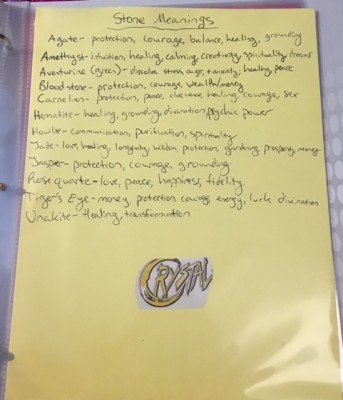 Stone Meanings
Agate - protection, courage, balance, healing, grounding
Amethyst - intuition, healing, calming, creativity, spirituality, dreams
Aventurine (green) - dissolve stress, anger, + anxiety; healing, peace
Bloodstone - protection, courage, wealth/money
Carnelian - protection, peace, healing, courage, sex
Hematite - healing, grounding, divination, psychic power
Howlite - communication, purification, spirituality
Jade - love, healing, longevity, wisdom, protection, gardening, prosperity, money
Jasper - protection, courage, grounding
Rose quartz - love, peace, happiness, fidelity
Tiger's Eye - money, protection, courage, energy, luck, divination
Unakite - Healing, transformation
CRYSTAL